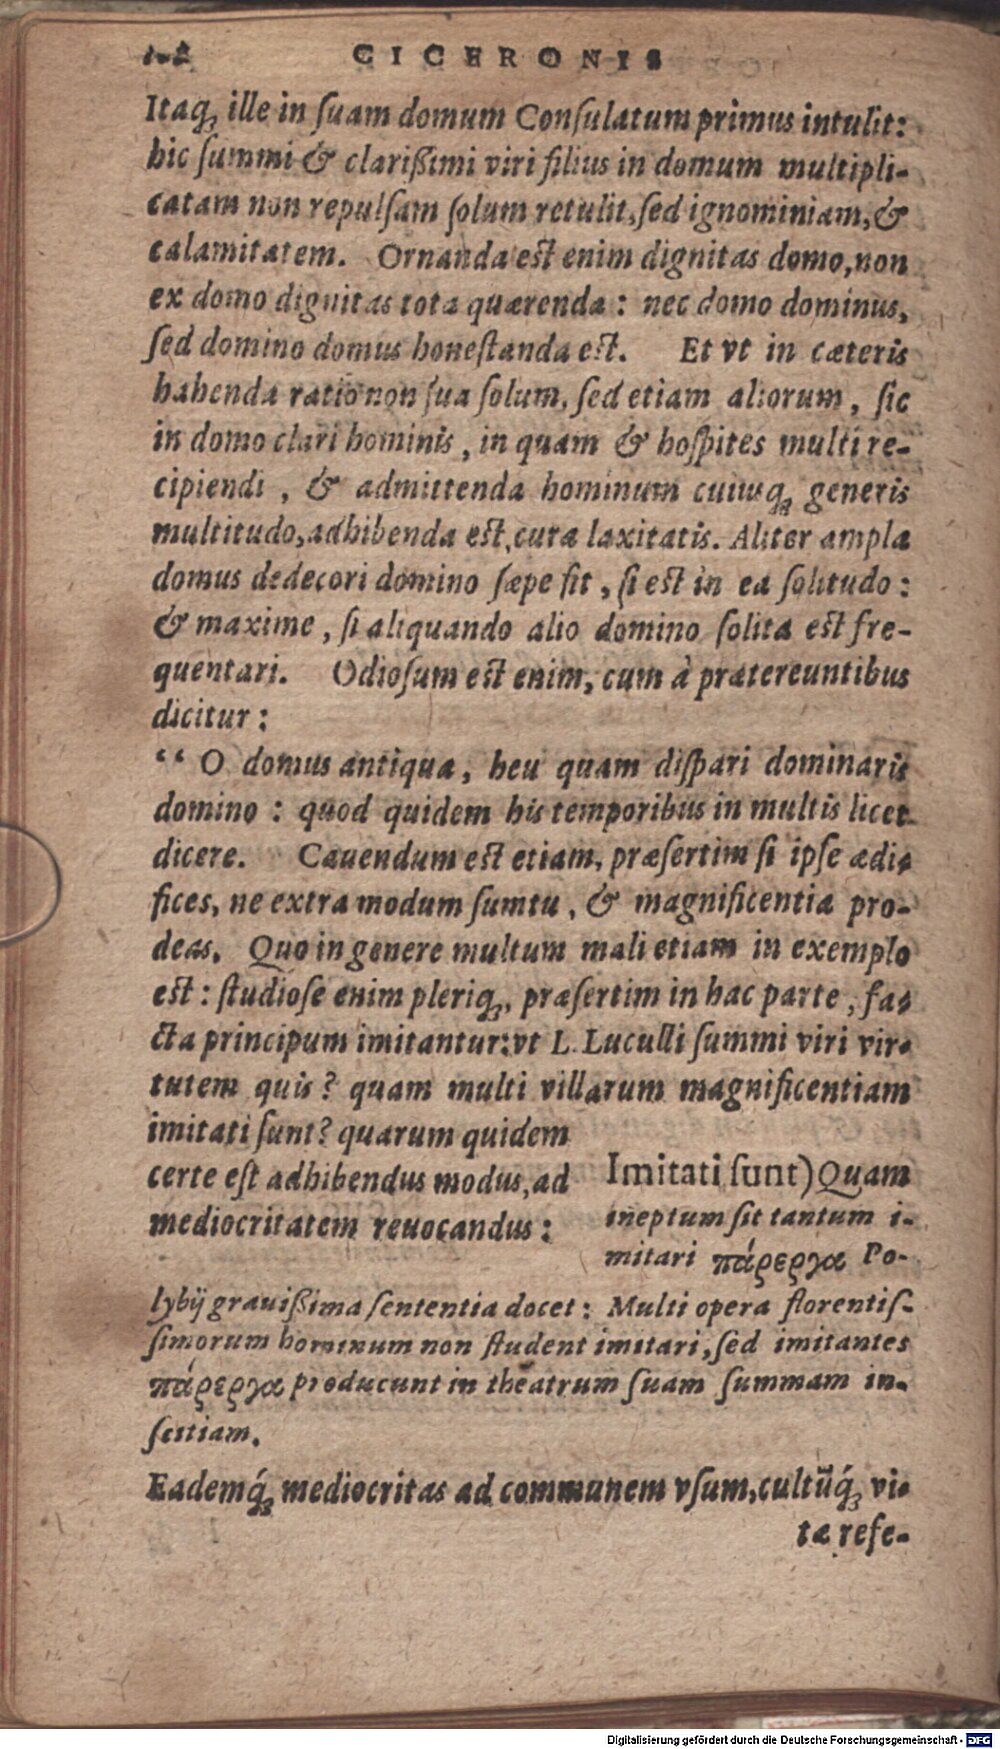 CICERONIS
Itaq; ille in ſuam domum Conſulatum primus intulit:
hic ſummi & clarißimi viri filius in domum multipli-
catam non repulſam ſolum retulit, ſed ignominiam, &
calamitatem. Ornanda est enim dignitas domo, non
ex domo dignitas tota quærenda: nec domo dominus,
ſed domino domus honeſtanda est. Et vt in cæteris
habenda ratio non ſua ſolum, ſed etiam aliorum, ſic
in domo clari hominis, in quam & hoſpites multi re-
cipiendi, & admittenda hominum cuiuſq; generis
multitudo, adhibenda est, cura laxitatis. Aliter ampla
domus dedecori domino ſæpe fit, ſi est in ea ſolitudo:
& maxime, ſi aliquando alio domino ſolita est fre-
quentari. Odioſum est enim, cum à prætereuntibus
dicitur:
“ O domus antiqua, heu quam diſpari dominaris
domino: quod quidem his temporibus in multis licet
dicere. Cauendum est etiam, præſertim ſi ipſe ædi-
fices, ne extra modum ſumtu, & magnificentia pro-
deas. Quo in genere multum mali etiam in exemplo
est: ſtudioſe enim pleriq;, præſertim in hac parte, fa-
cta principum imitantur: vt L. Luculli ſummi viri vir-
tutem quis? quam multi villarum magnificentiam
imitati ſunt? quarum quidem
certe eſt adhibendus modus, ad
mediocritatem reuocandus:
Imitati ſunt) Quam
ineptum ſit tantum i-
mitari πάρεργα Po-
lybij grauißima ſententia docet: Multi opera florentiſ-
ſimorum hominum non ſtudent imitari, ſed imitantes
πάρεργα producunt in theatrum ſuam ſummam in-
ſcitiam.
Eademq́; mediocritas ad communem vſum, cultũq́; vi-
tæ refe-
Digitalisierung gefördert durch die Deutsche Forschungsgemeinschaft - DFG